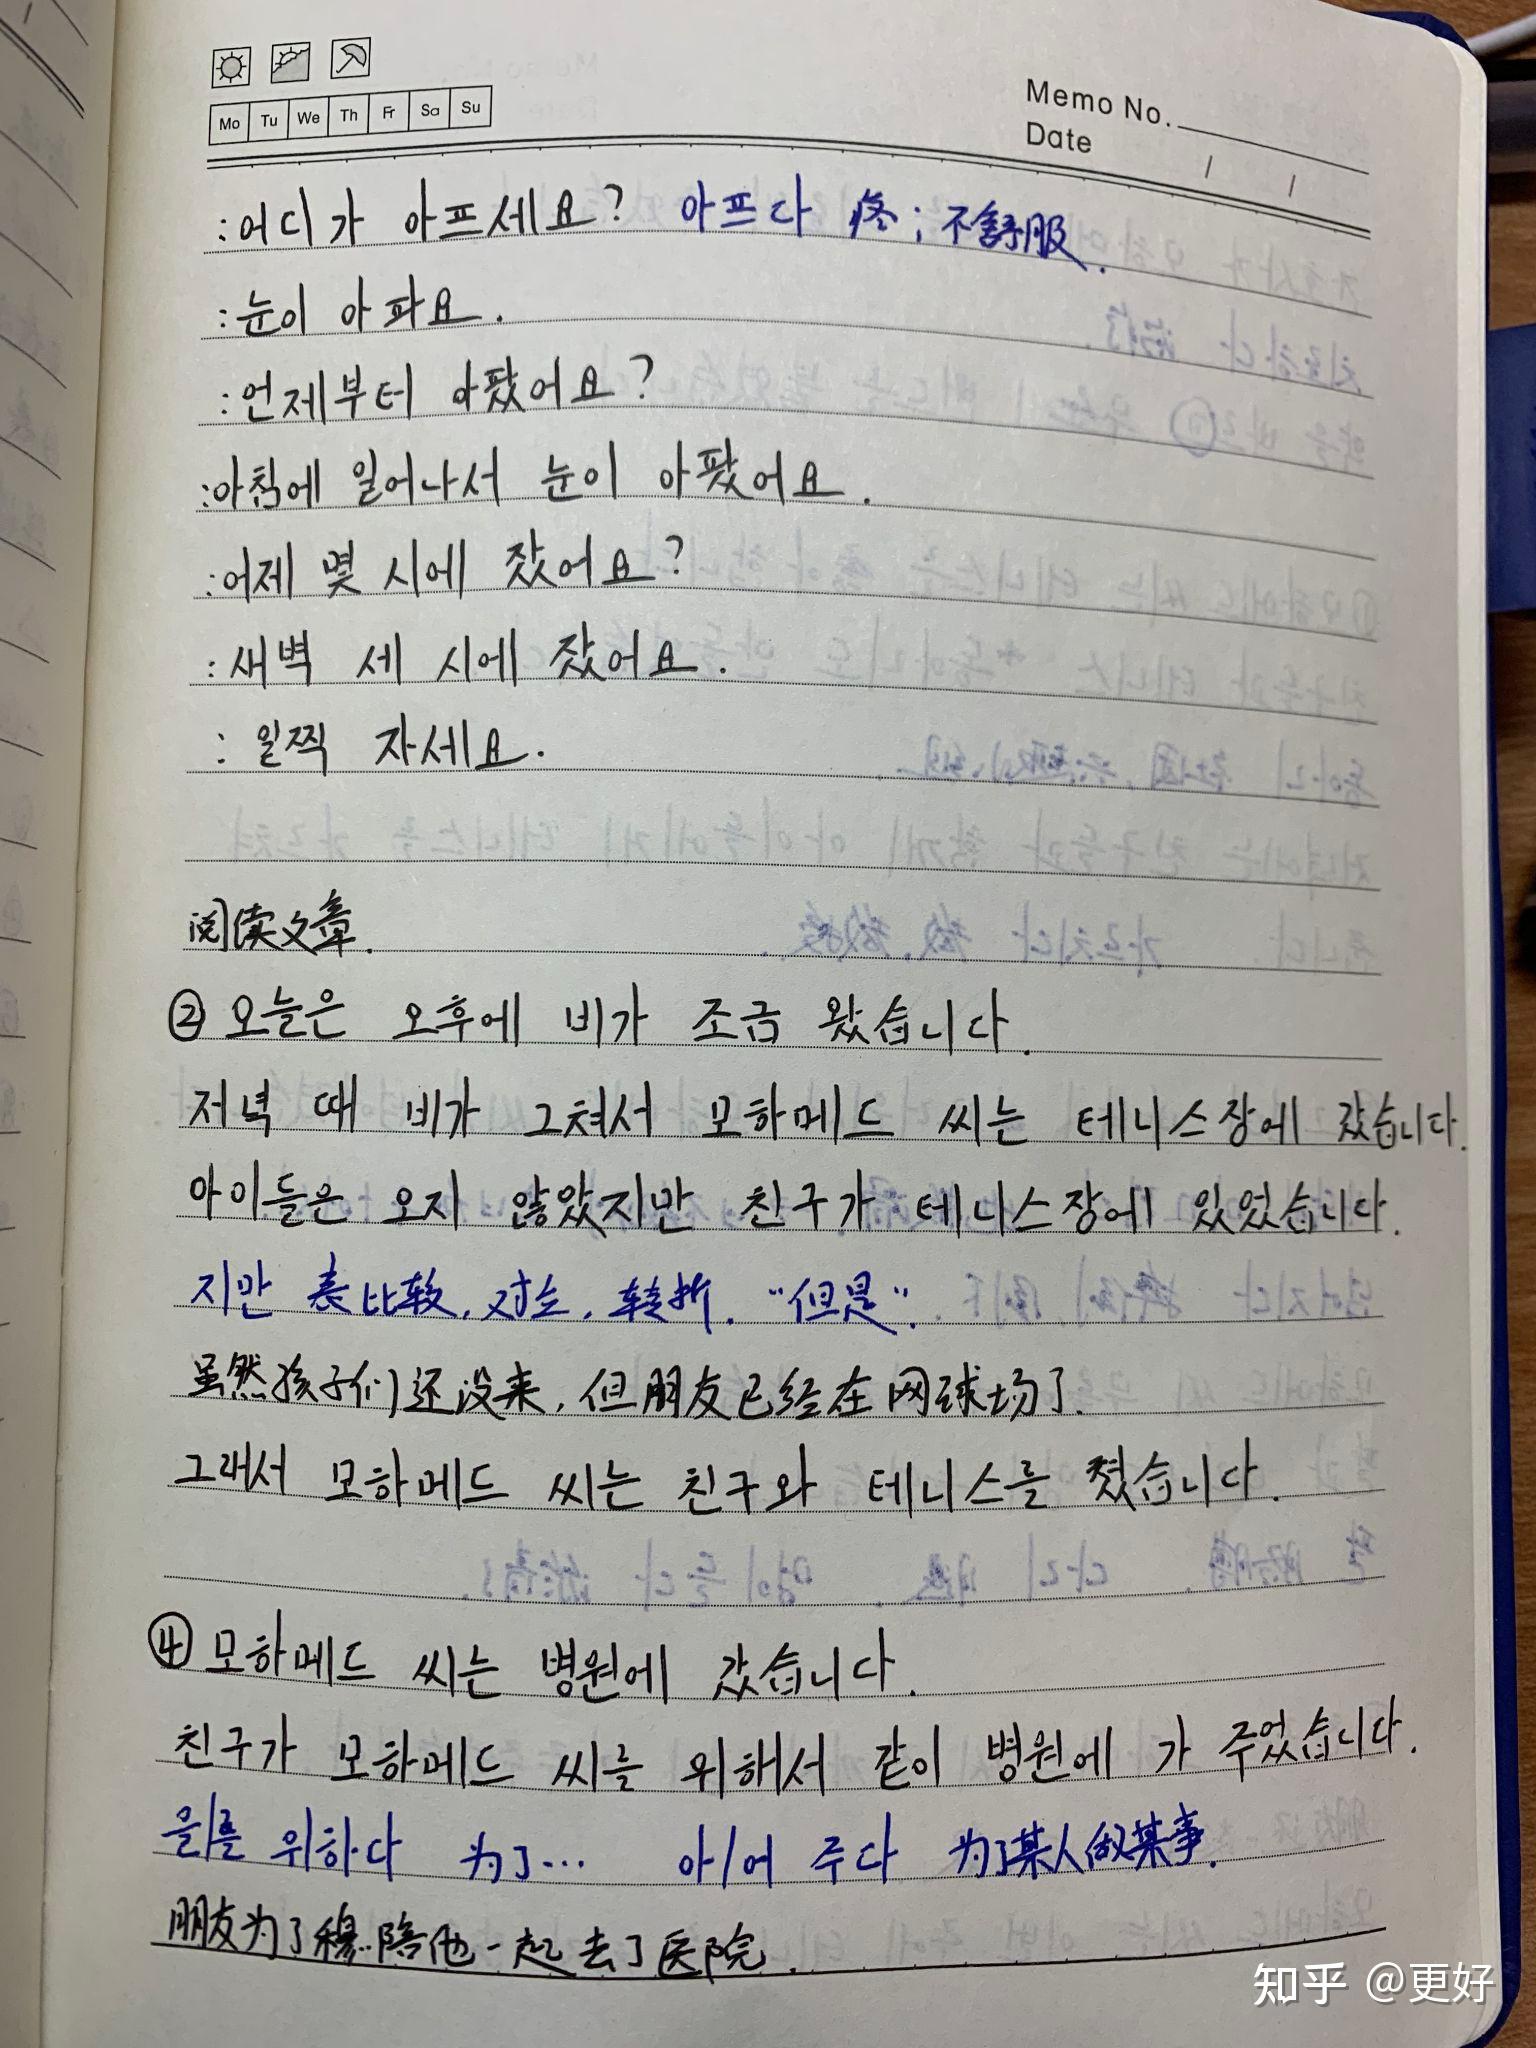 Mo Tu We Th Fr Sa Su
Memo No.
Date / /
:어디가 아프세요? 아프다 疼;不舒服.
:눈이 아파요.
:언제부터 아팠어요?
:아침에 일어나서 눈이 아팠어요.
:어제 몇 시에 잤어요?
:새벽 세 시에 잤어요.
: 일찍 자세요.
阅读文章.
② 오늘은 오후에 비가 조금 왔습니다.
저녁 때 비가 그쳐서 모하메드 씨는 테니스장에 갔습니다.
아이들은 오지 않았지만 친구가 테니스장에 있었습니다.
지만 表比较,对立,转折. "但是".
虽然孩子们还没来,但朋友已经在网球场了.
그래서 모하메드 씨는 친구와 테니스를 쳤습니다.
④ 모하메드 씨는 병원에 갔습니다.
친구가 모하메드 씨를 위해서 같이 병원에 가 주었습니다.
을/를 위하다 为了... 아/어 주다 为了某人做某事.
朋友为了穆..陪他一起去了医院.
知乎 @更好